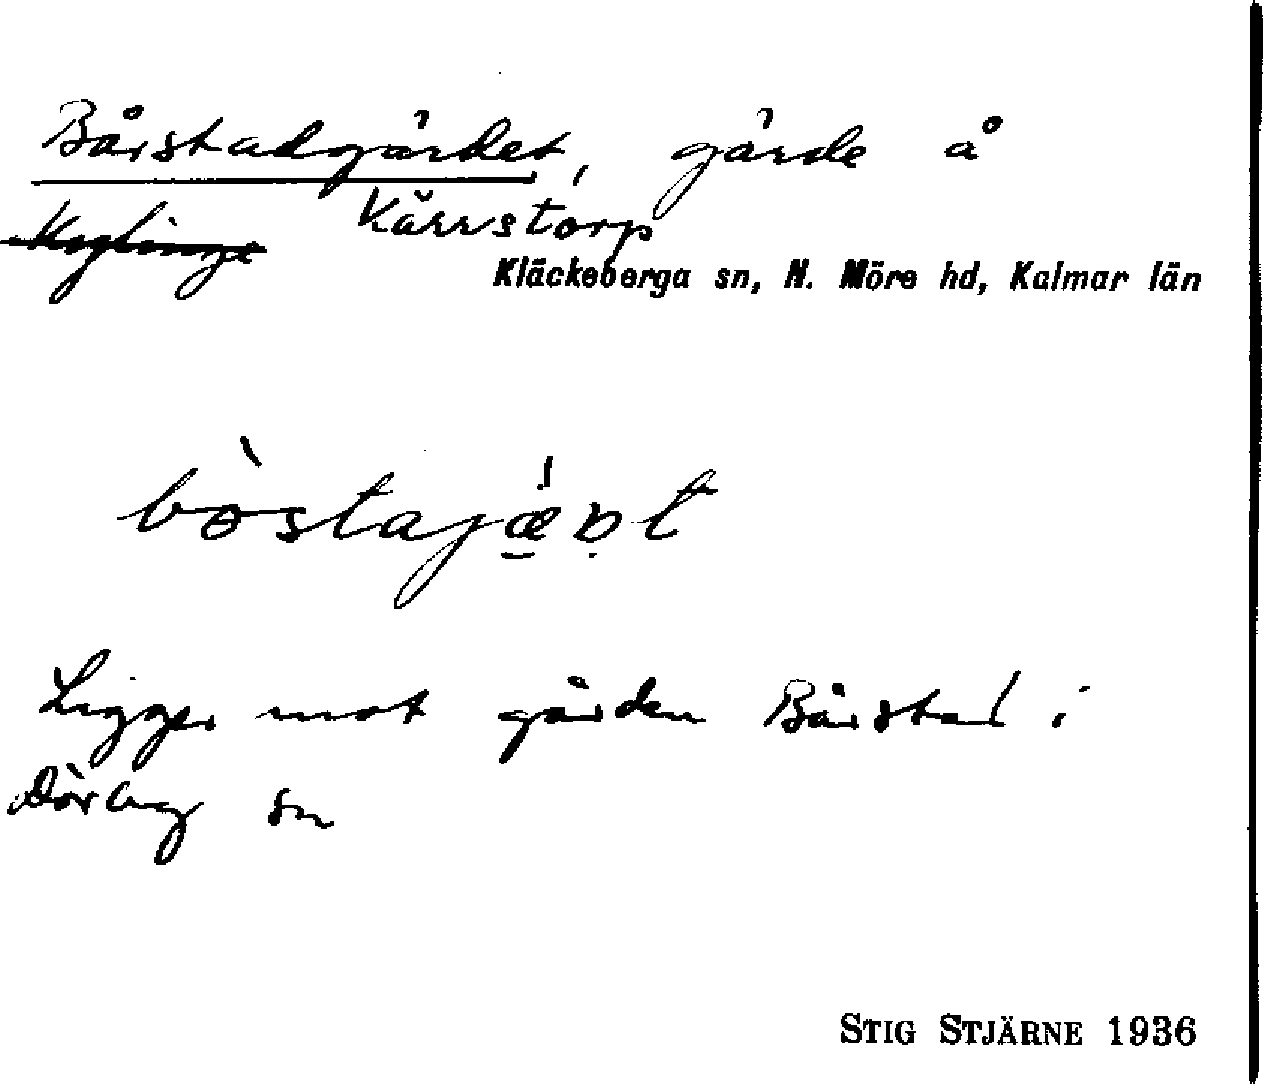 Bårstadgärdet, gärde å
Käglinge Kärrstorp
Kläckeberga sn, N. Möre hd, Kalmar län
Ligger mot gården Bårstad i
Dörby sn
STIG STJÄRNE 1936